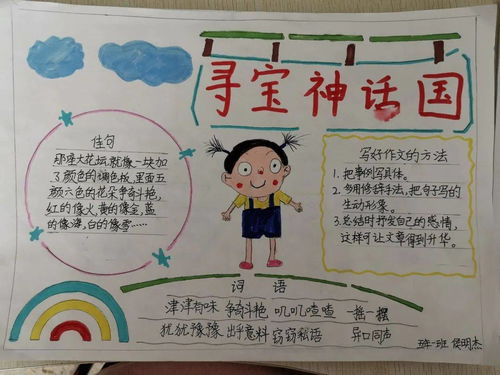 寻宝神话国
佳句
那座大花坛就像一块加
了颜色的调色板,里面五
颜六色的花朵争奇斗艳,
红的像火,黄的像金,蓝
的像海,白的像雪……
写好作文的方法
1.把事例写具体。
2.多用修辞手法,把句子写的
生动形象。
3.总结时抒发自己的感情,
这样可让文章得到升华。
词语
津津有味 争奇斗艳 叽叽喳喳 一摇一摆
犹犹豫豫 出乎意料 窃窃私语 异口同声
五年一班 侯明杰